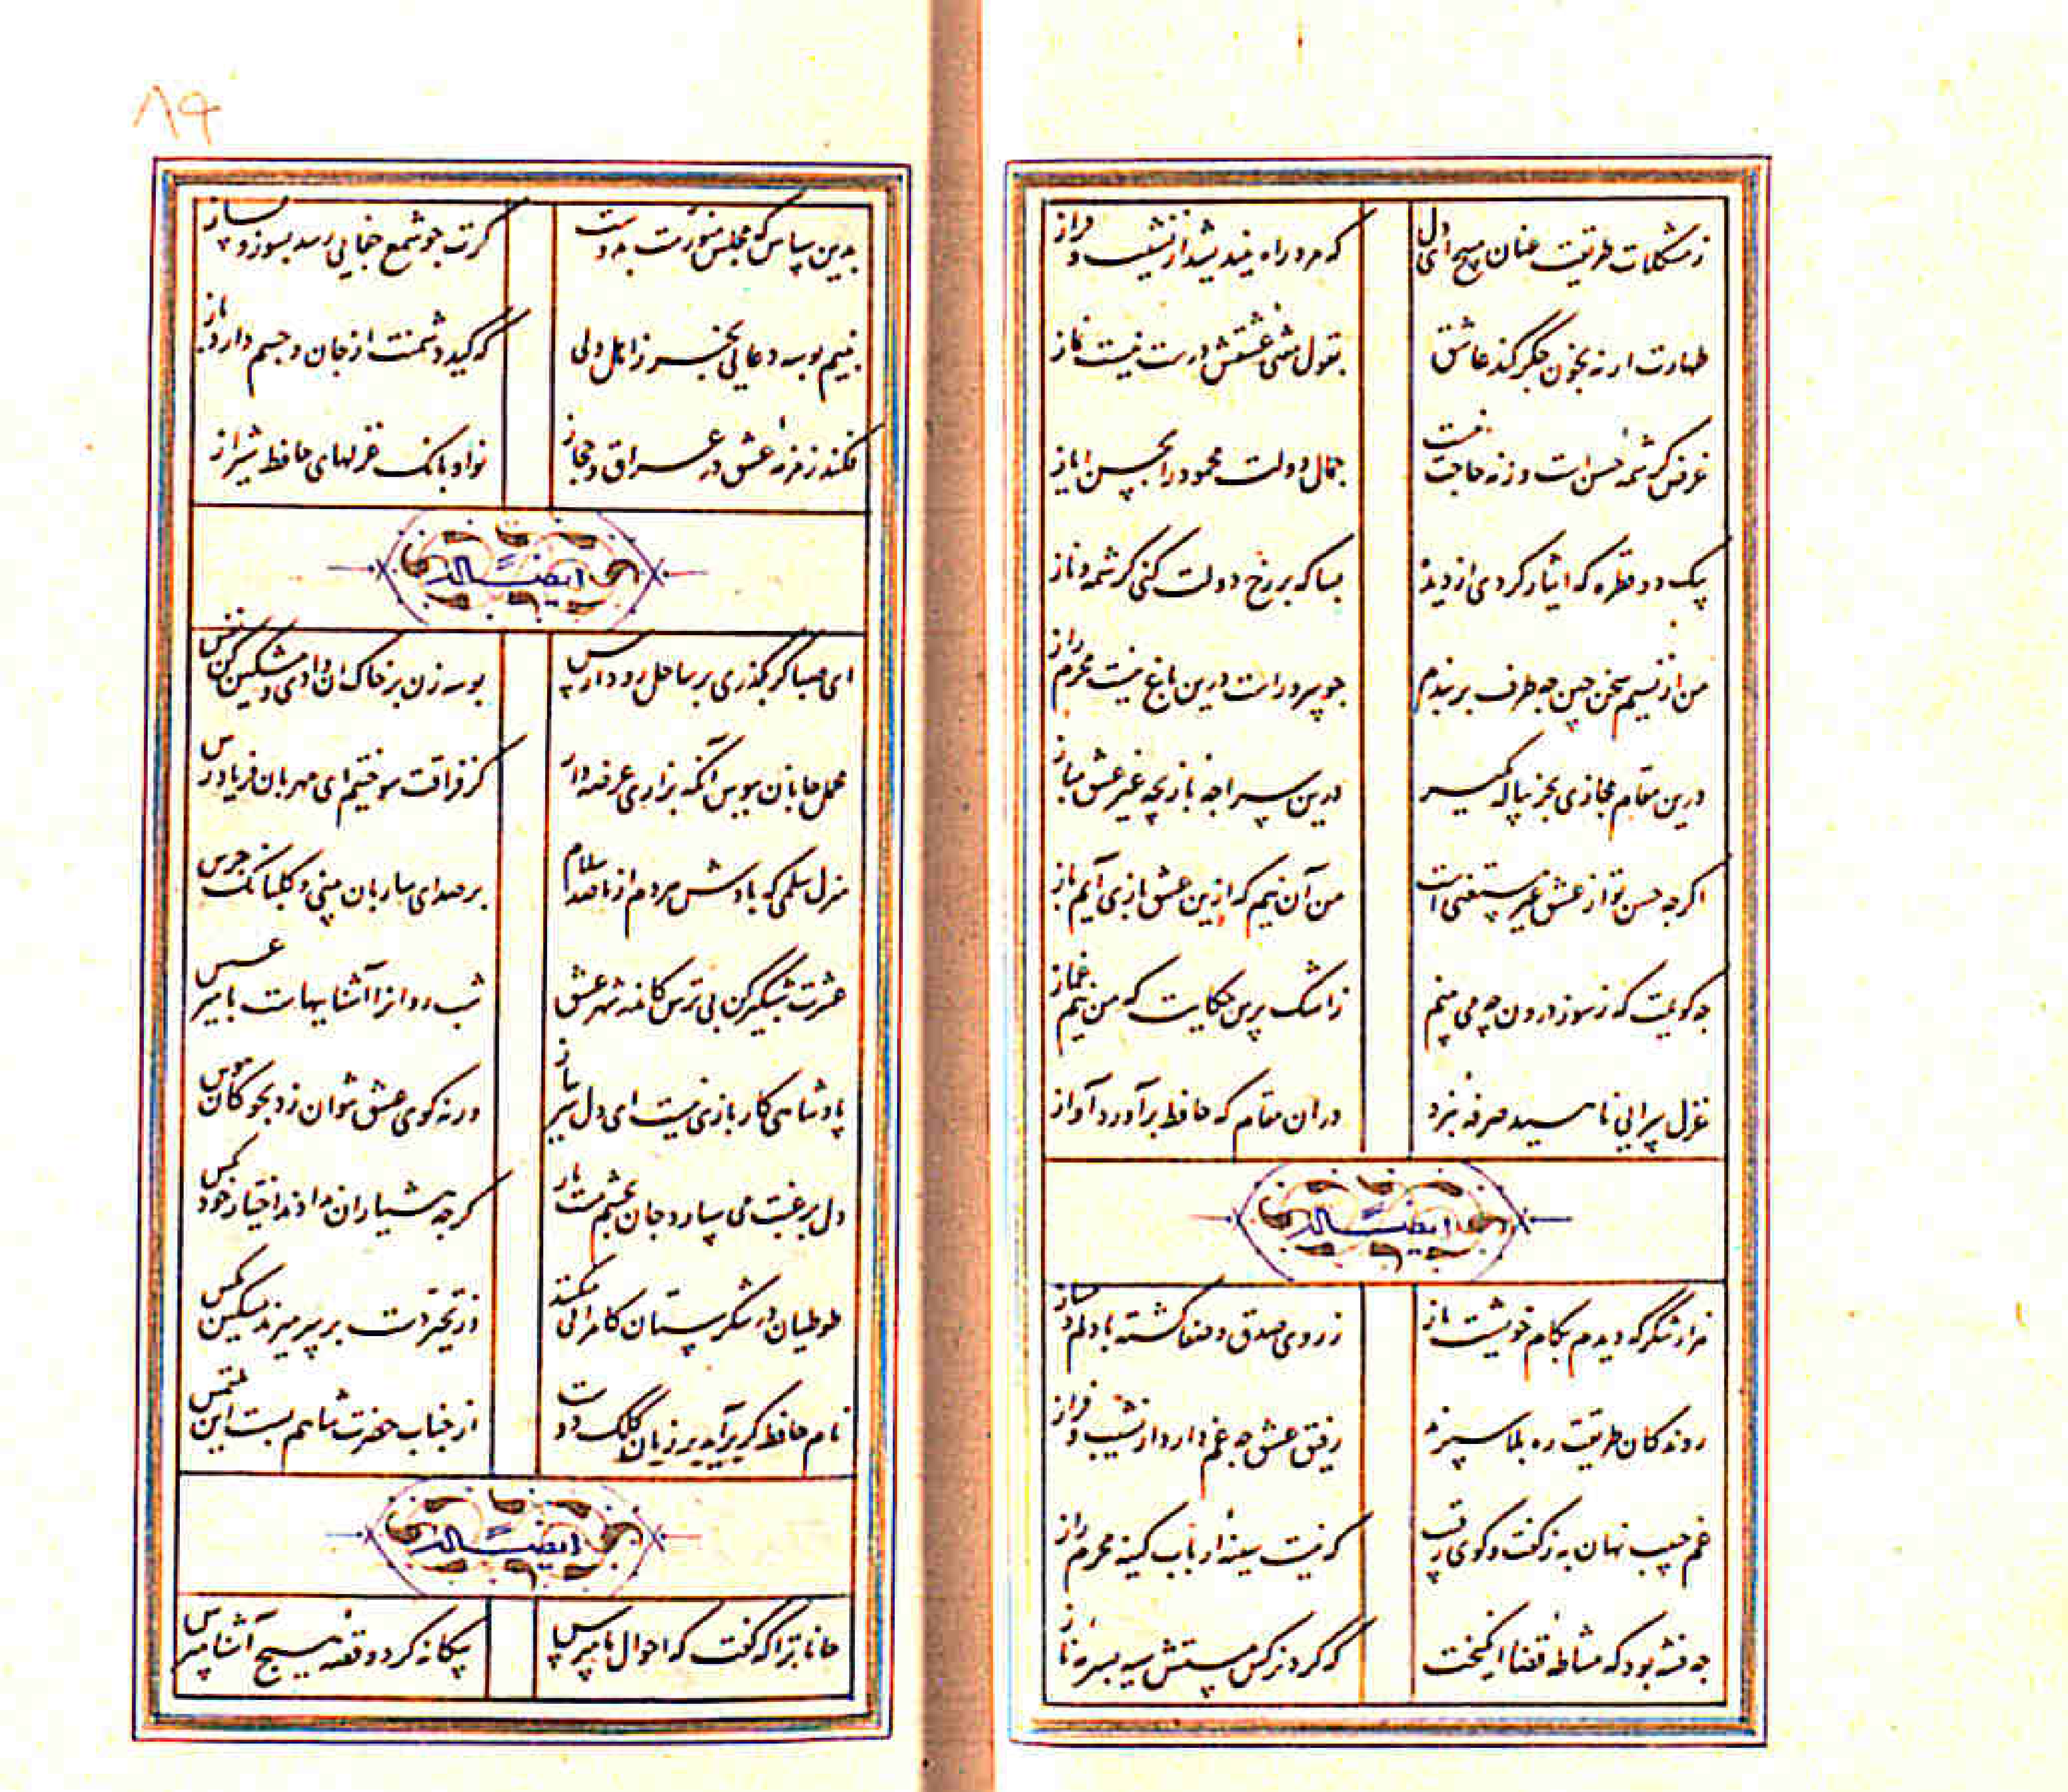 ز مشکلات طریقت عنان مپیچ ای دل
که مرد راه نیندیشد از نشیب و فراز
طهارت ار نه بخون جگر کند عاشق
بقول مفتی عشقش درست نیست نماز
غرض کرشمه حسن است ورنه حاجت نیست
جمال دولت محمود را بحسن ایاز
بیک دو قطره که ایثار کردی از دیده
بسا که بر رخ دولت کنی کرشمه و ناز
من از نسیم سخن چین چه طرف بربندم
چو سرو راست درین باغ نیست محرم راز
درین مقام مجازی بجز پیاله مگیر
درین سراچه بازیچه غیر عشق مباز
اگرچه حسن تو از عشق غیر مستغنی است
من آن نیم که ازین عشق بازی آیم باز
چه گویمت که ز سوز درون چه می بینم
ز اشک پرس حکایت که من نیم غماز
غزل سرایی ناهید صرفه نبرد
دران مقام که حافظ برآورد آواز
ایضا له
هزار شکر که دیدم بکام خویشت باز
ز روی صدق و صفا گشته با دلم دمساز
روندکان طریقت ره بلا سپرند
رفیق عشق چه غم دارد از نشیب و فراز
غم حبیب نهان به ز گفت و گوی رقیب
که نیست سینه ارباب کینه محرم راز
چه فتنه بود که مشاطه قضا انگیخت
که کرد نرگس مستش سیه بسرمه ناز
۸۴
بدین سپاس که مجلس منورست بدوست
گرت چو شمع جفایی رسد بسوز و بساز
بنیم بوسه دعایی بخر ز اهل دلی
که کید دشمنت از جان و جسم دارد باز
فکند زمزمه عشق در عراق و حجاز
نوا و بانک غزلهای حافظ شیراز
ایضا له
ای صبا گر بگذری بر ساحل رود ارس
بوسه زن بر خاک آن وادی و مشکین کن نفس
محمل جانان ببوس آنگه بزاری عرضه دار
کز فراقت سوختیم ای مهربان فریادرس
منزل سلمی که بادش هر دم از ما صد سلام
پر صدای ساربان بینی و گلبانک جرس
عشرت شبگیر کن بی ترس کاندر شهر عشق
شب روانرا آشناییهاست با میر عسس
پادشاهی کار بازی نیست ای دل سر بباز
ورنه گوی عشق نتوان زد بچوگان هوس
دل برغبت می سپارد جان بچشم مست یار
گرچه هشیاران ندادند اختیار خود بکس
طوطیان در شکرستان کامرانی میکنند
وز تحیر دست بر سر میزند مسکین مکس
نام حافظ گر برآید بر زبان کلک دوست
از جناب حضرت شاهم بست این ملتمس
ایضا له
جانا ترا که گفت که احوال ما مپرس
بیگانه گرد و قصه هیچ آشنا مپرس